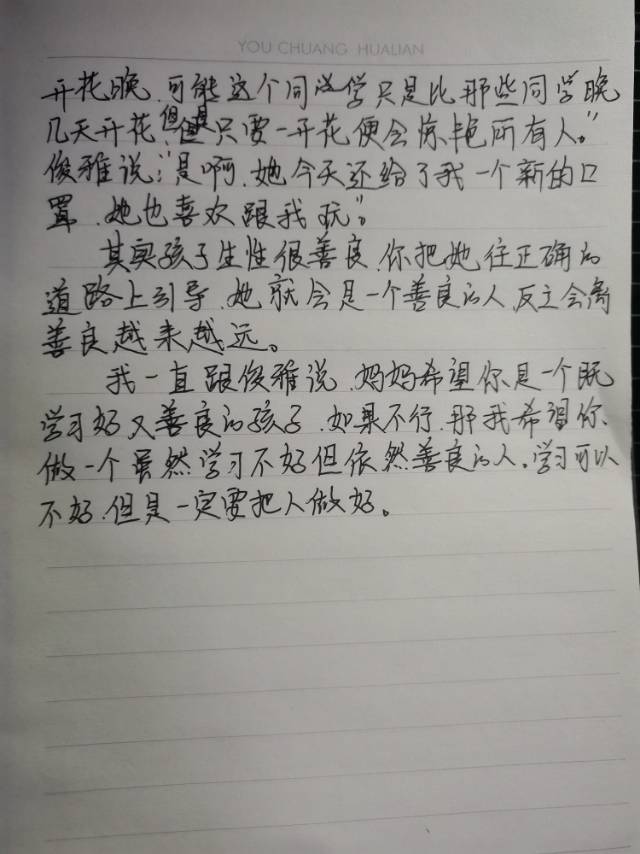 YOU CHUANG HUALIAN
开花晚，可能这个同学只是比那些同学晚
几天开花，但是只要一开花便会惊艳所有人。”
俊雅说：“是啊，她今天还给了我一个新的口
罩，她也喜欢跟我玩。”
其实孩子生性很善良，你把她往正确的
道路上引导，她就会是一个善良的人，反之会离
善良越来越远。
我一直跟俊雅说，妈妈希望你是一个既
学习好又善良的孩子，如果不行，那我希望你
做一个虽然学习不好但依然善良的人。学习可以
不好，但是一定要把人做好。